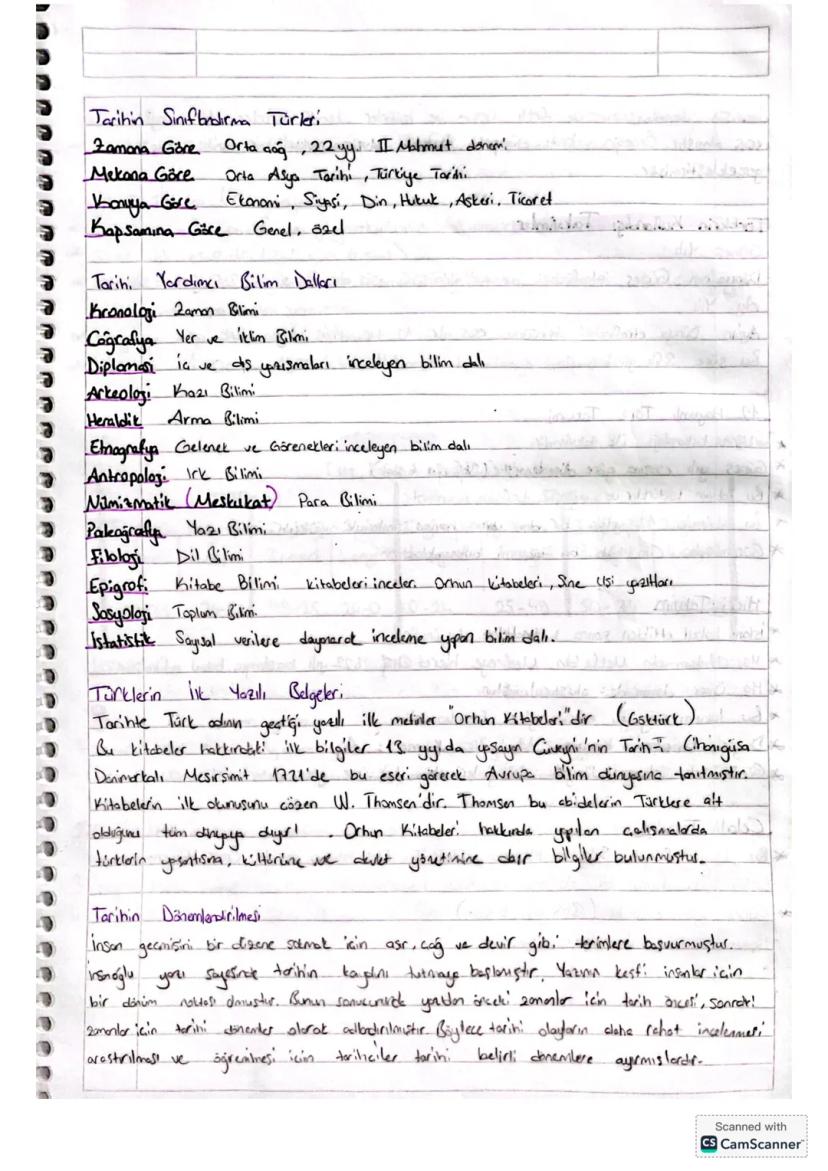 Tarihin Sınıflandırma Türleri
Zamana Göre Orta çağ, 22 yy, II Mahmut dönemi
Mekana Göre Orta Asya Tarihi, Türkiye Tarihi
Konuya Göre Ekonomi, Siyasi, Din, Hukuk, Askeri, Ticaret
Kapsamına Göre Genel, özel
Tarihi Yardımcı Bilim Dalları
Kronoloji Zaman Bilimi
Coğrafya Yer ve İklim Bilimi
Diplomasi iç ve dış yazışmaları inceleyen bilim dalı
Arkeoloji Kazı Bilimi
Heraldik Arma Bilimi
Etnografya Gelenek ve Görenekleri inceleyen bilim dalı
Antropoloji Irk Bilimi
Nümizmatik (Meskukat) Para Bilimi
Paleografya Yazı Bilimi
Filoloji Dil Bilimi
Epigrafi Kitabe Bilimi kitabeleri inceler. Orhun kitabeleri, Sine Uşi yazıtları
Sosyoloji Toplum Bilimi
İstatistik Sayısal verilere dayanarak inceleme yapan bilim dalı.
Türklerin İlk Yazılı Belgeleri
Tarihte Türk adının geçtiği yazılı ilk metinler "Orhun Kitabeleri"dir (Göktürk)
Bu kitabeler hakkındaki ilk bilgiler 13. yy'da yaşayan Cüveyni'nin Tarih-i Cihangüşa
Danimarkalı Mesirsimit 1721'de bu eseri görerek Avrupa bilim dünyasına tanıtmıştır.
Kitabelerin ilk okunuşunu çözen W. Thomsen'dir. Thomsen bu abidelerin Türklere ait
olduğunu tüm dünyaya duyurdu. Orhun Kitabeleri hakkında yapılan çalışmalarda
türklerin yaşantısına, kültürüne ve devlet yönetimine dair bilgiler bulunmuştur.
Tarihin Dönemlendirilmesi
İnsan geçmişini bir düzene sokmak için asır, çağ ve devir gibi terimlere başvurmuştur.
insanoğlu yazı sayesinde tarihin kaydını tutmaya başlamıştır. Yazının keşfi insanlar için
bir dönüm noktası olmuştur. Bunun sonucunda yazıdan önceki zamanlar için tarih öncesi, sonraki
zamanlar için tarihi dönemler olarak adlandırılmıştır. Böylece tarihi olayların daha rahat incelenmesi
araştırılması ve öğrenilmesi için tarihçiler tarihi belirli dönemlere ayırmışlardır.
Scanned with
CS CamScanner